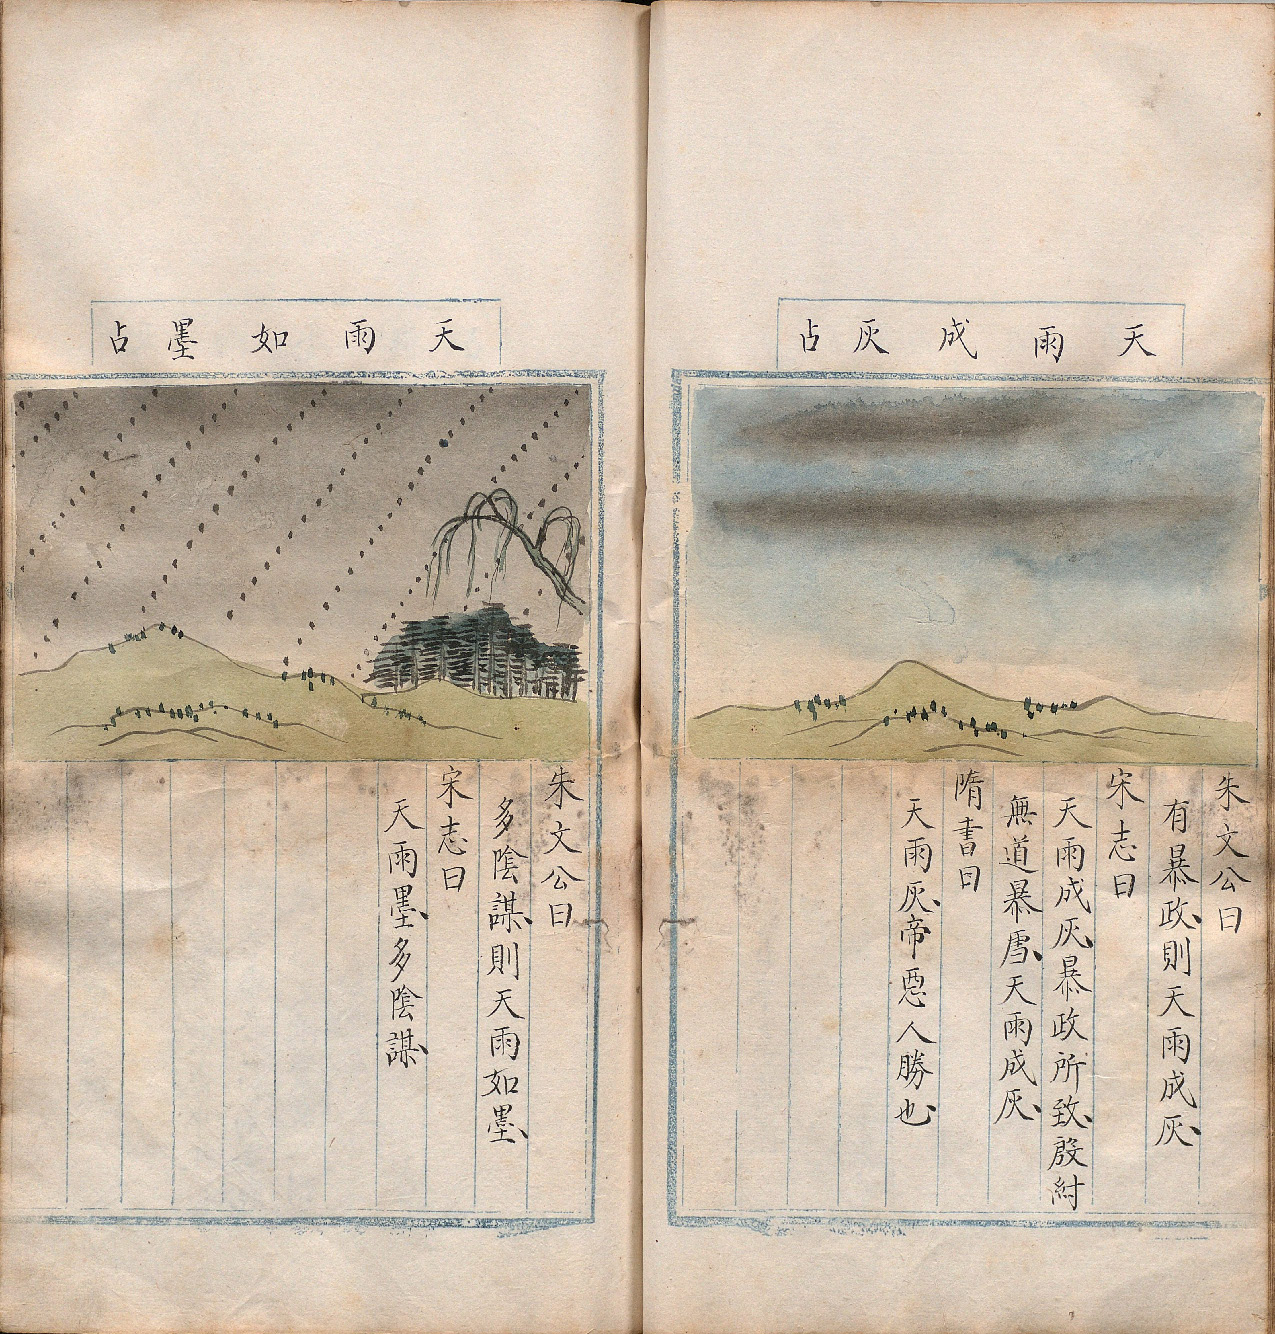 天雨成灰占
朱文公曰
有暴政、則天雨成灰、
宋志曰
天雨成灰、暴政所致、殷紂
無道暴虐、天雨成灰、
隋書曰
天雨灰、帝惡人勝也、
天雨如墨占
朱文公曰
多陰謀、則天雨如墨、
宋志曰
天雨墨、多陰謀、